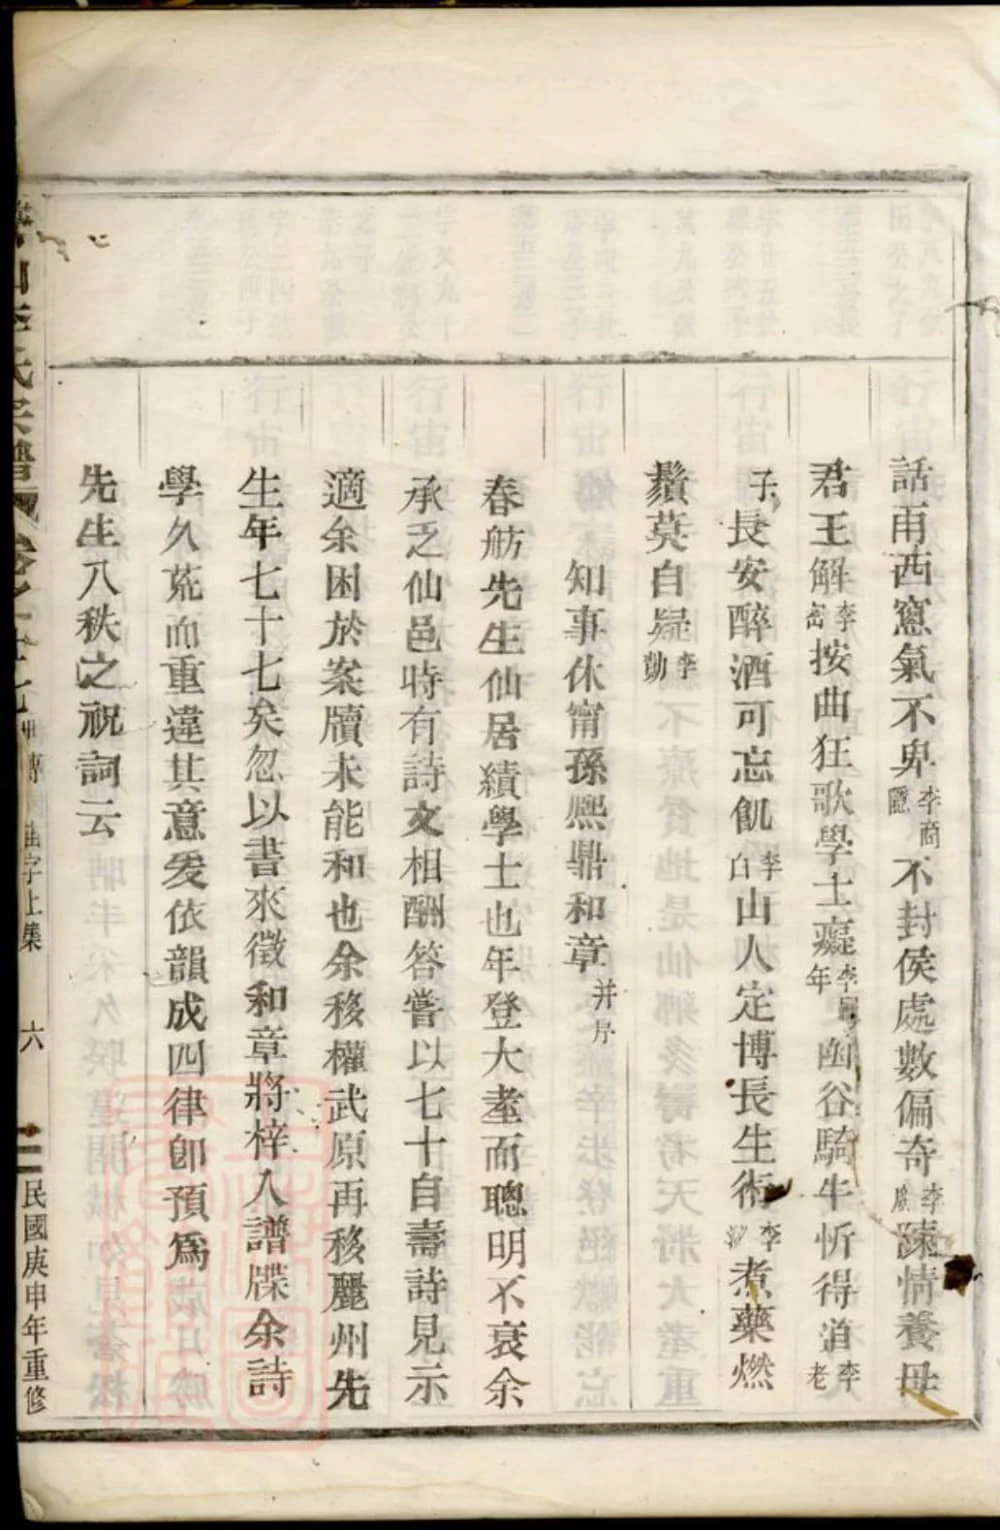 話雨西窻氣不卑李商隱不封侯處數偏奇李廣陳情養母
君王解李密按曲狂歌學士癡李龜年函谷騎牛忻得道李老
子長安醉酒可忘飢李白山人定博長生術李泌煮藥燃
鬚莫自疑李勣
知事休甯孫熙鼎和章并序
春舫先生仙居績學士也年登大耋而聰明不衰余
承乏仙邑時有詩文相酬答嘗以七十自壽詩見示
適余困於案牘未能和也余移權武原再移麗州先
生年七十七矣忽以書來徵和章將梓入譜牒余詩
學久荒而重違其意爰依韻成四律卽預爲
先生八秩之祝詞云
山李氏宗譜 卷之十七 傳 字上集 六 民國庚申年重修